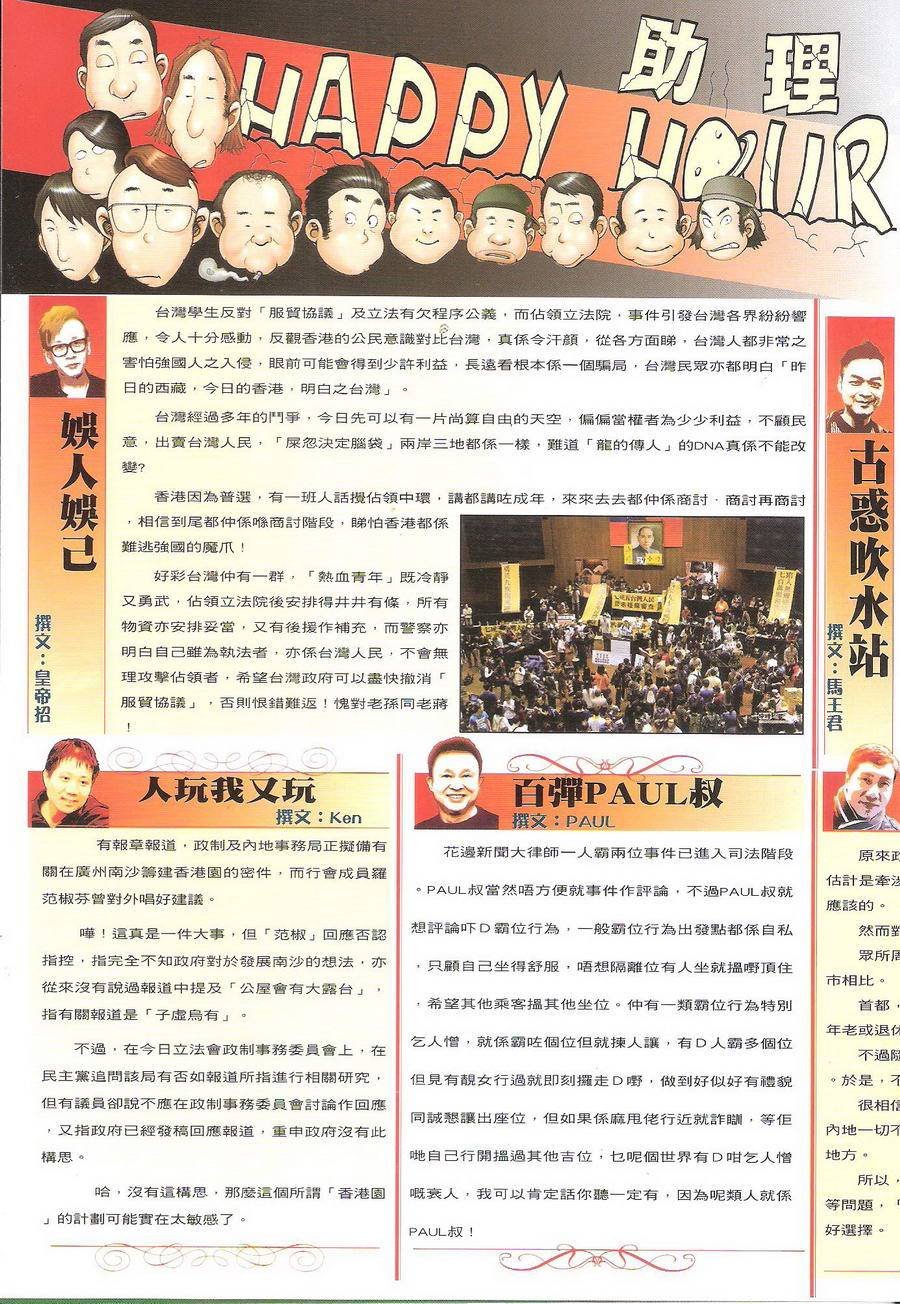 助理
HAPPY HOUR
娛人娛己
撰文：皇帝招
台灣學生反對「服貿協議」及立法有欠程序公義，而佔領立法院，事件引發台灣各界紛紛響
應，令人十分感動，反觀香港的公民意識對比台灣，真係令汗顏，從各方面睇，台灣人都非常之
害怕強國人之入侵，眼前可能會得到少許利益，長遠看根本係一個騙局，台灣民眾亦都明白「昨
日的西藏，今日的香港，明白之台灣」。
台灣經過多年的鬥爭，今日先可以有一片尚算自由的天空，偏偏當權者為少少利益，不顧民
意，出賣台灣人民，「屎忽決定腦袋」兩岸三地都係一樣，難道「龍的傳人」的DNA真係不能改
變?
香港因為普選，有一班人話攪佔領中環，講都講咗成年，來來去去都仲係商討．商討再商討
，相信到尾都仲係喺商討階段，睇怕香港都係
難逃強國的魔爪！
好彩台灣仲有一群，「熱血青年」既冷靜
又勇武，佔領立法院後安排得井井有條，所有
物資亦安排妥當，又有後援作補充，而警察亦
明白自己雖為執法者，亦係台灣人民，不會無
理攻擊佔領者，希望台灣政府可以盡快撤消「
服貿協議」，否則恨錯難返！愧對老孫同老蔣
！
古惑吹水站
撰文：馬王君
人玩我又玩
撰文：Ken
有報章報道，政制及內地事務局正擬備有
關在廣州南沙籌建香港園的密件，而行會成員羅
范椒芬曾對外唱好建議。
嘩！這真是一件大事，但「范椒」回應否認
指控，指完全不知政府對於發展南沙的想法，亦
從來沒有說過報道中提及「公屋會有大露台」，
指有關報道是「子虛烏有」。
不過，在今日立法會政制事務委員會上，在
民主黨追問該局有否如報道所指進行相關研究，
但有議員卻說不應在政制事務委員會討論作回應
，又指政府已經發稿回應報道，重申政府沒有此
構思。
哈，沒有這構思，那麼這個所謂「香港園
」的計劃可能實在太敏感了。
百彈PAUL叔
撰文：PAUL
花邊新聞大律師一人霸兩位事件已進入司法階段
。PAUL叔當然唔方便就事件作評論，不過PAUL叔就
想評論吓D霸位行為，一般霸位行為出發點都係自私
，只顧自己坐得舒服，唔想隔離位有人坐就搵嘢頂住
，希望其他乘客搵其他坐位。仲有一類霸位行為特別
乞人憎，就係霸咗個位但就揀人讓，有D人霸多個位
但見有靚女行過就即刻攞走D嘢，做到好似好有禮貌
同誠懇讓出座位，但如果係麻甩佬行近就詐瞓，等佢
哋自己行開搵過其他吉位；乜呢個世界有D咁乞人憎
嘅衰人，我可以肯定話你聽一定有，因為呢類人就係
PAUL叔！
原來政
估計是牽涉
應該的。
然而對
眾所周
市相比。
首都，
年老或退休
不過隨
。於是，不
很相信
內地一切不
地方。
所以，
等問題，「
好選擇。